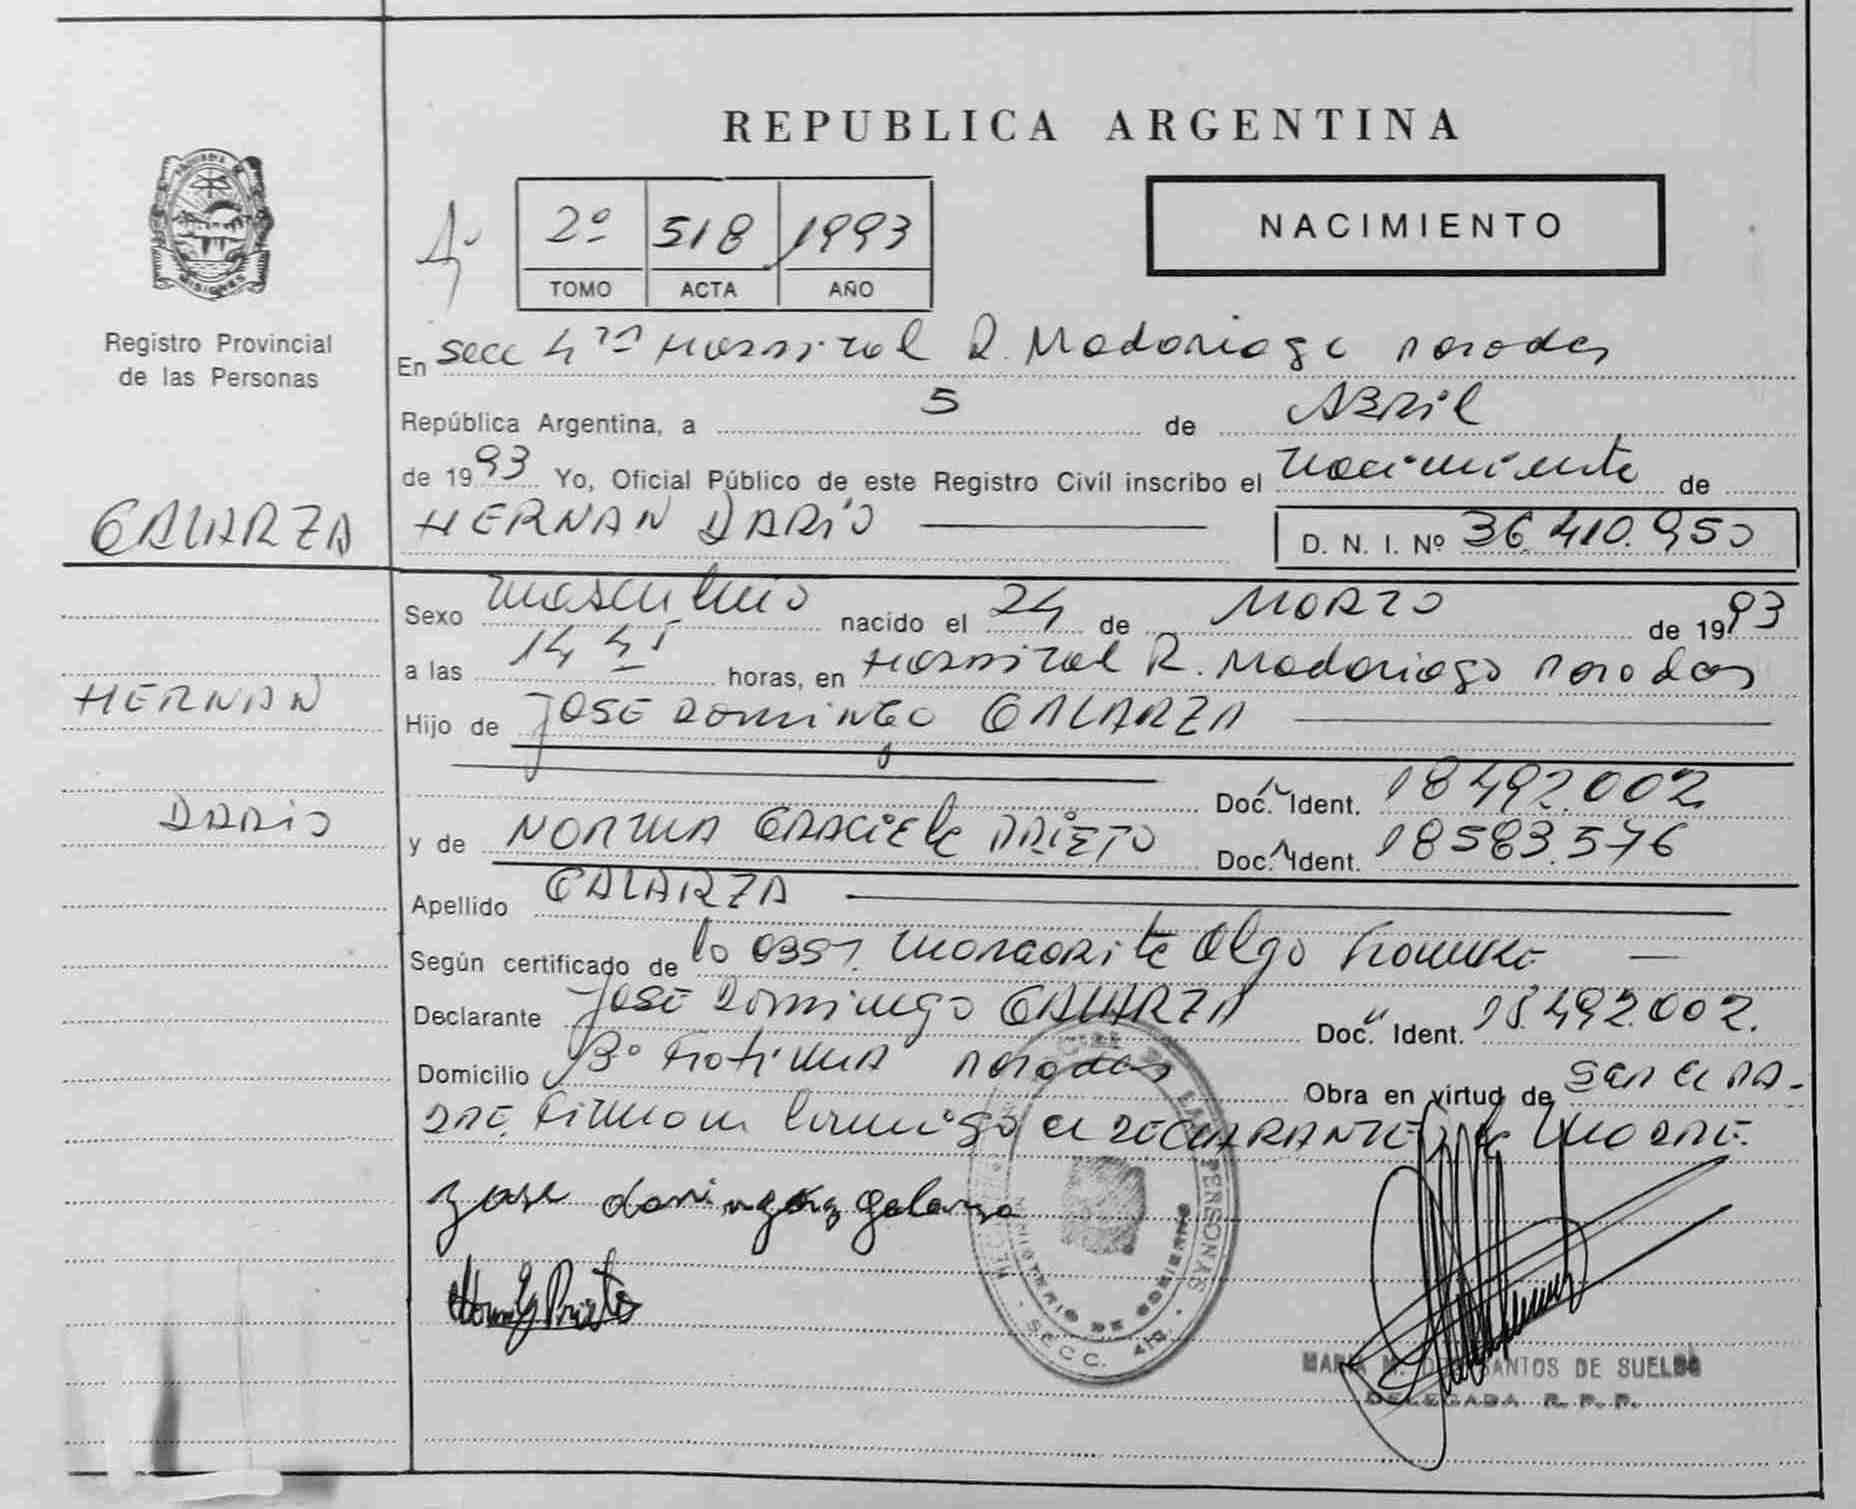 REPUBLICA ARGENTINA
2º 518 1993
TOMO ACTA AÑO
NACIMIENTO
MISIONES
Registro Provincial
de las Personas
En Secc 4ta Hospital R. Madariaga Posadas
República Argentina, a 5 de Abril
de 1993 Yo, Oficial Público de este Registro Civil inscribo el nacimiento de
GALARZA HERNAN DARIO D. N. I. Nº 36.410.950
Sexo masculino nacido el 24 de Marzo de 1993
a las 14 45 horas, en Hospital R. Madariaga Posadas
HERNAN
Hijo de JOSE DOMINGO GALARZA
Doc. Ident. 18.492.002
DARIO
y de NORMA GRACIELA PRIETO Doc. Ident. 18583.576
Apellido GALARZA
Según certificado de la Obst. Margarita Olga
Declarante JOSE Domingo GALARZA Doc. Ident. 18.492.002.
Domicilio Bº Fatima Posadas Obra en virtud de ser el PA-
DRE, Firman conmigo el DECLARANTE y la MADRE.
jose domingo galarza
Prieto
LAS PERSONAS
MINISTERIO DE GOBIERNO
SECC. 4ta
SANTOS DE SUELDO
DELEGADA R. P. P.